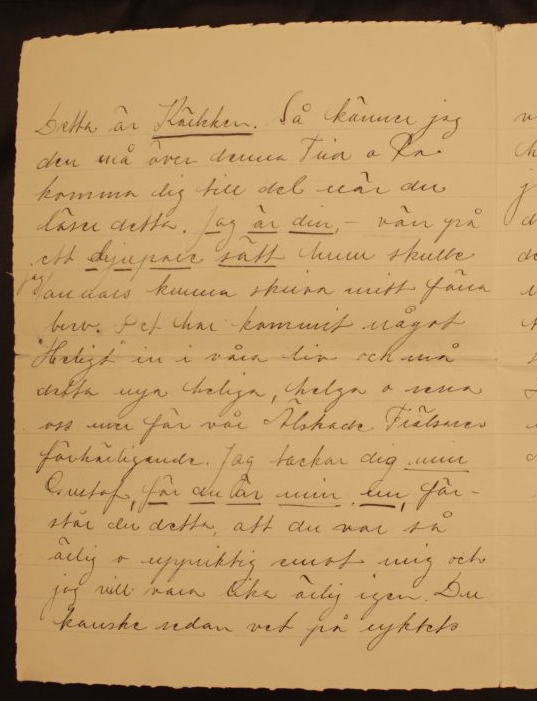 Detta är Kärleken. Så känner jag
den må över denna Tid o
komma dig till del när du
läser detta. Jag är din, – vän på
ett djupare sätt hur skulle
jag annars kunna skriva mitt förra
brev. Det har kommit något
"Heligt" in i våra liv och må
detta nya heliga, helga o rena
oss mer för vår Älskade Frälsares
förhärligande. Jag tackar dig min
Gustaf, för du är min en, för-
står du detta, att du var så
ärlig o uppriktig emot mig och
jag vill vara lika ärlig igen. Du
kanske redan vet på ryktets